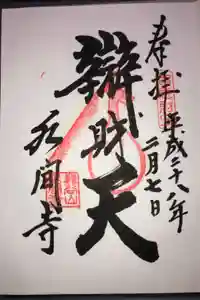 奉拝
平成二十八年
二月七日
辯財天
水間寺